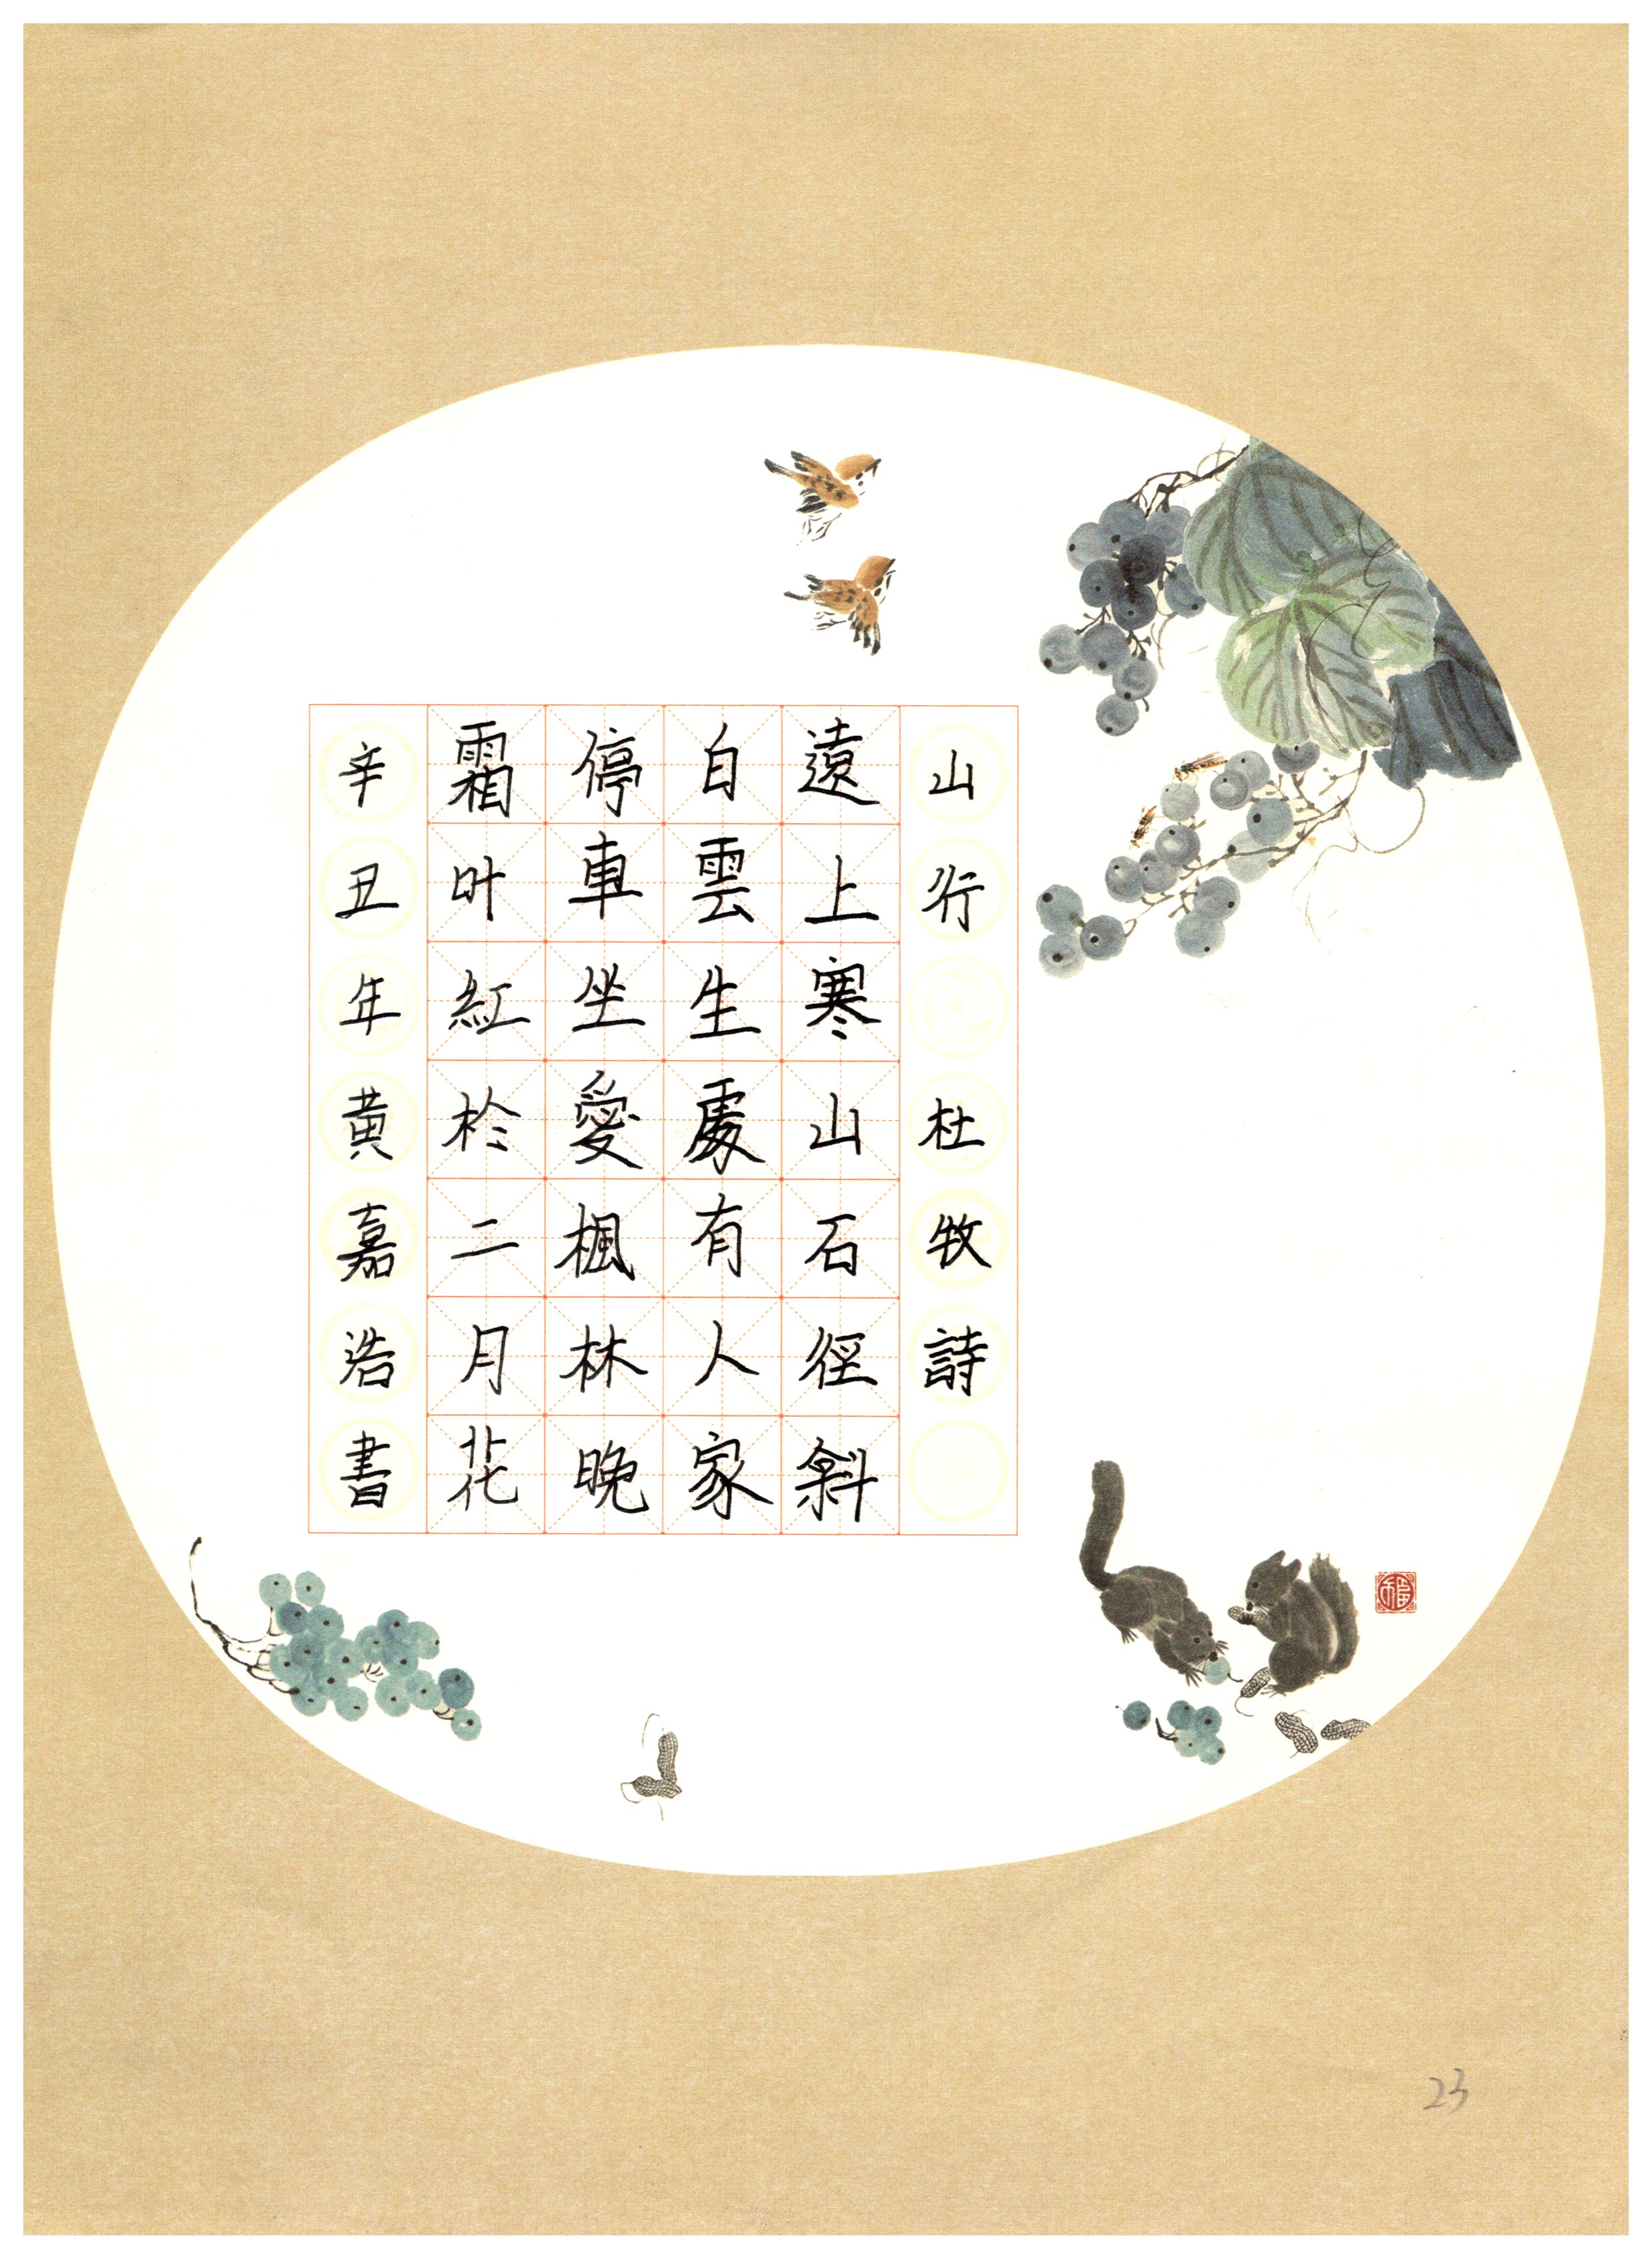 山行 杜牧詩
遠上寒山石徑斜
白雲生處有人家
停車坐愛楓林晚
霜叶紅於二月花
辛丑年黄嘉浩書
福
23